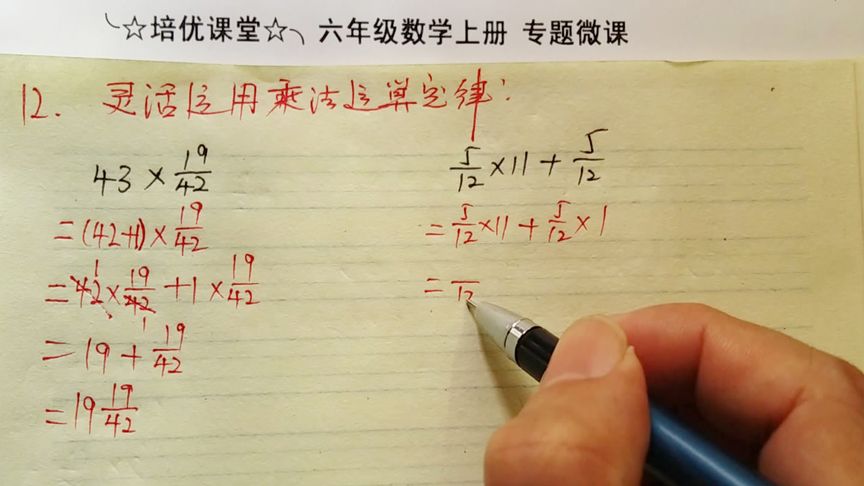 ☆培优课堂☆ 六年级数学上册 专题微课
12. 灵活运用乘法运算定律:
43 × 19/42
= (42+1) × 19/42
= 42 × 19/42 + 1 × 19/42
1 1
= 19 + 19/42
= 19 19/42
5/12 × 11 + 5/12
= 5/12 × 11 + 5/12 × 1
= /12